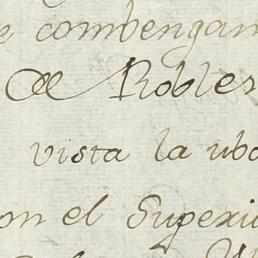 e combengam
de Robles
vista la ubo
on el Superi